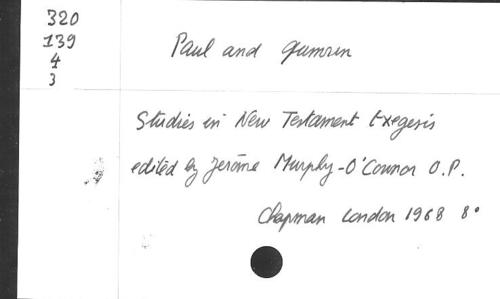 320
139
4
3
Paul and Qumran
Studies in New Testament Exegesis
edited by Jerôme Murphy-O'Connor O.P.
Chapman London 1968 8°